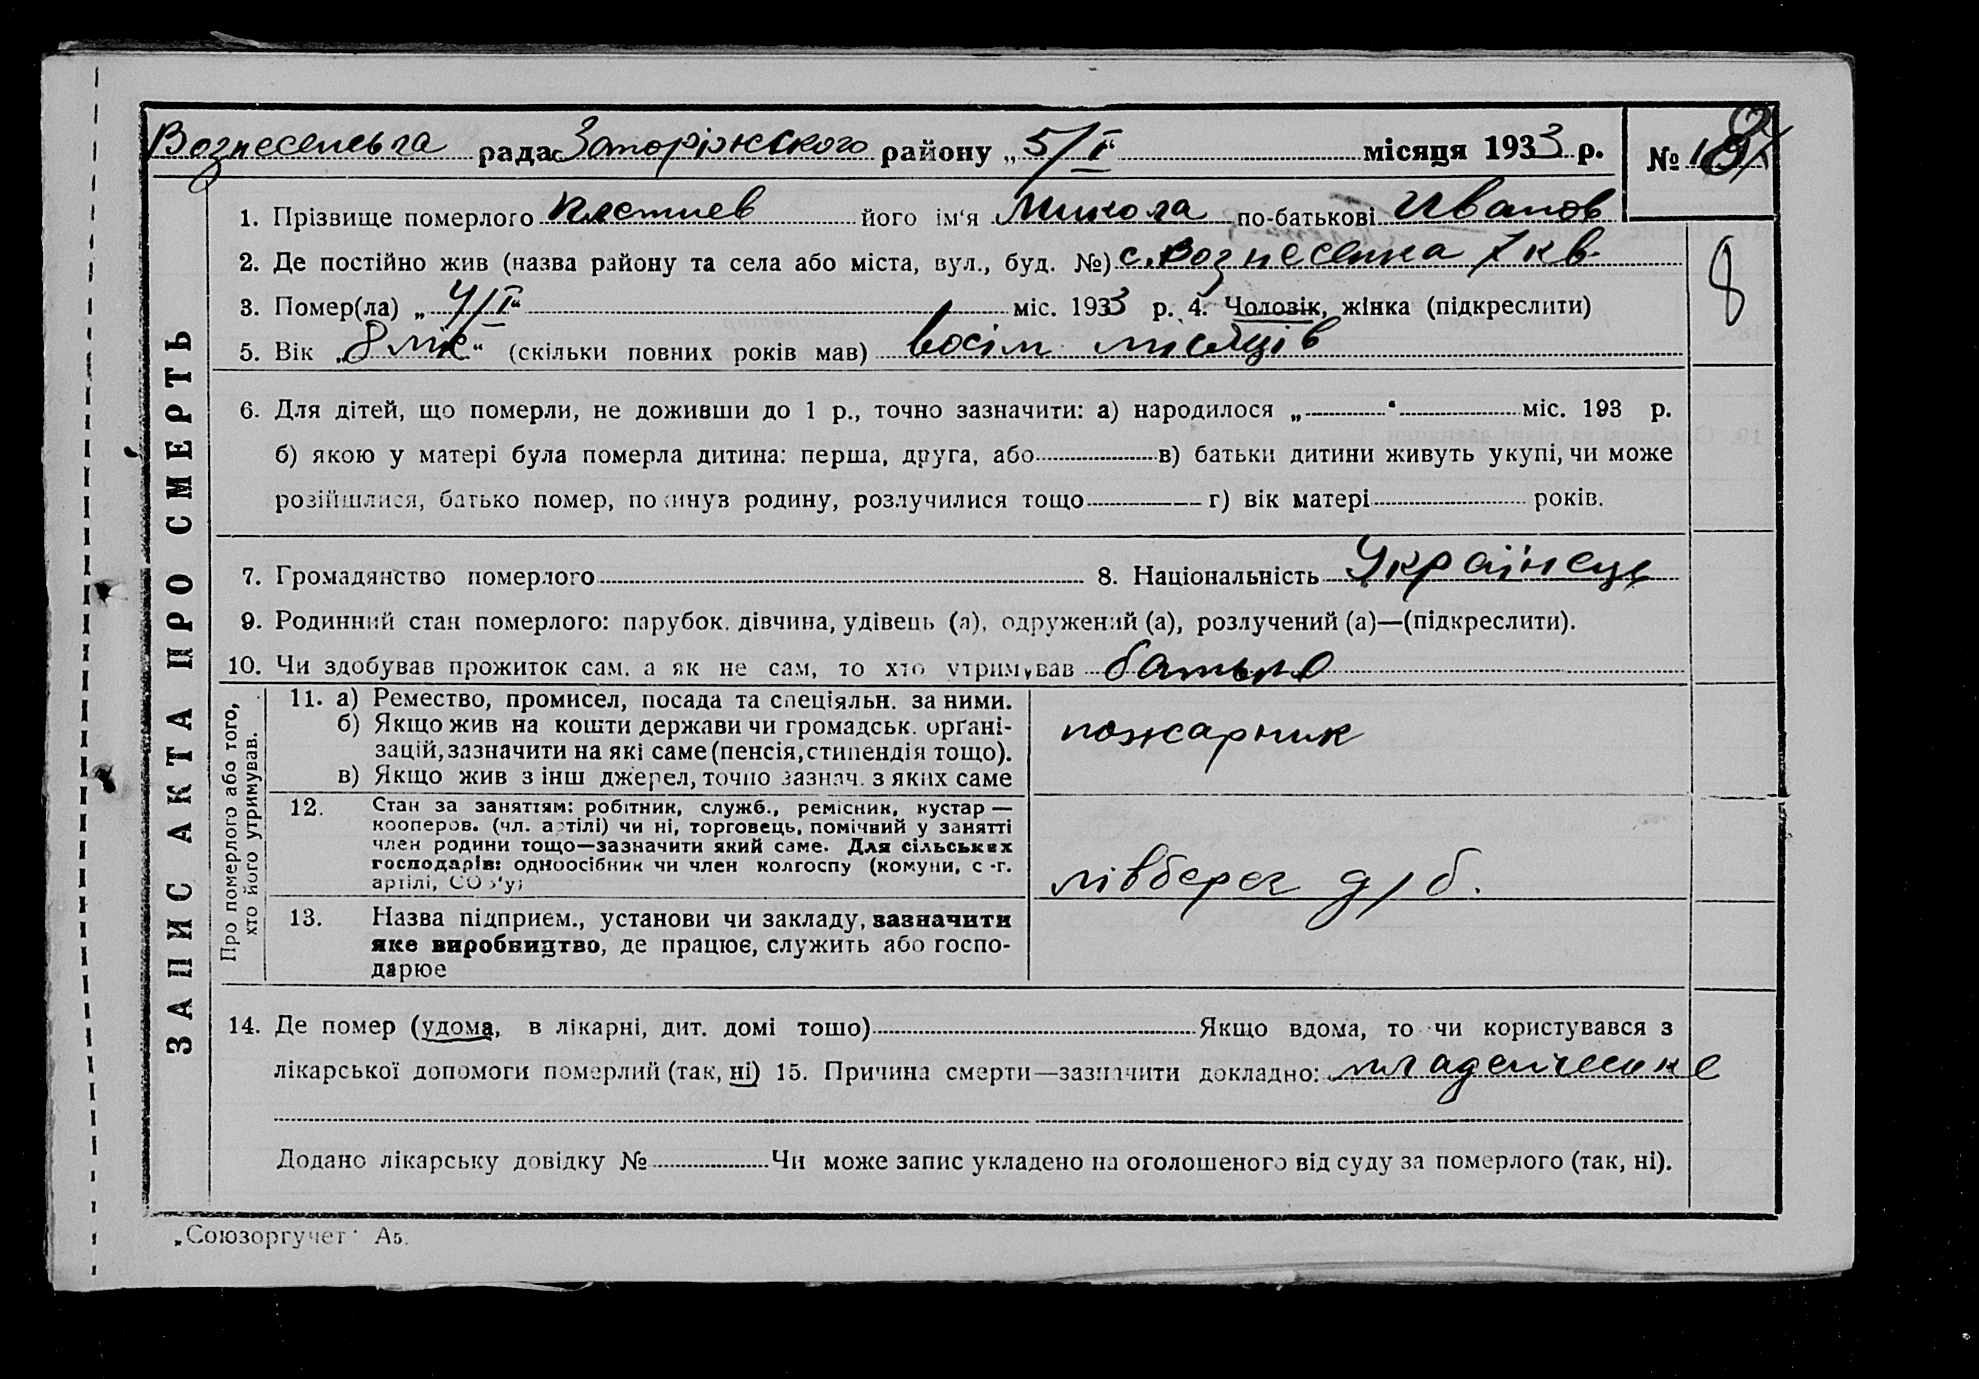 Вознесенська рада Запоріжського району „5/I“ місяця 1933 р. №
1. Прізвище померлого його ім‘я Микола по-батькові Иванов
2. Де постійно жив (назва району та села або міста, вул., буд. №) с. Вознесенка 7 кв.
8
3. Помер(ла) „4/I“ міс. 1933 р. 4. Чоловік, жінка (підкреслити)
5. Вік „8 міс“ (скільки повних років мав) восім місяців
6. Для дітей, що померли, не доживши до 1 р., точно зазначити: а) народилося „ “ міс. 193 р.
б) якою у матері була померла дитина: перша, друга, або в) батьки дитини живуть укупі, чи може
розійшлися, батько помер, покинув родину, розлучилися тощо г) вік матері років.
7. Громадянство померлого 8. Національність Українець
9. Родинний стан померлого: парубок, дівчина, удівець (а), одружений (а), розлучений (а)—(підкреслити).
10. Чи здобував прожиток сам, а як не сам, то хто утримував батько
11. а) Ремество, промисел, посада та спеціяльн. за ними.
б) Якщо жив на кошти держави чи громадськ. органі-
зацій, зазначити на які саме (пенсія, стипендія тощо).
в) Якщо жив з інш джерел, точно зазнач. з яких саме
пожарник
12. Стан за заняттям: робітник, служб., ремісник, кустар —
кооперов. (чл. артілі) чи ні, торговець, помічний у занятті
член родини тощо—зазначити який саме. Для сільських
господарів: одноосібник чи член колгоспу (комуни, с.-г.
артілі, СОЗ'у)
лівберег д/б.
13. Назва підприєм., установи чи закладу, зазначити
яке виробництво, де працює, служить або госпо-
дарює
Про померлого або того,
хто його утримував.
14. Де помер (удома, в лікарні, дит. домі тощо) Якщо вдома, то чи користувався з
лікарської допомоги померлий (так, ні) 15. Причина смерти—зазначити докладно: младенческе
Додано лікарську довідку № Чи може запис укладено на оголошеного від суду за померлого (так, ні).
ЗАПИС АКТА ПРО СМЕРТЬ
„Союзоргучет“ А5.